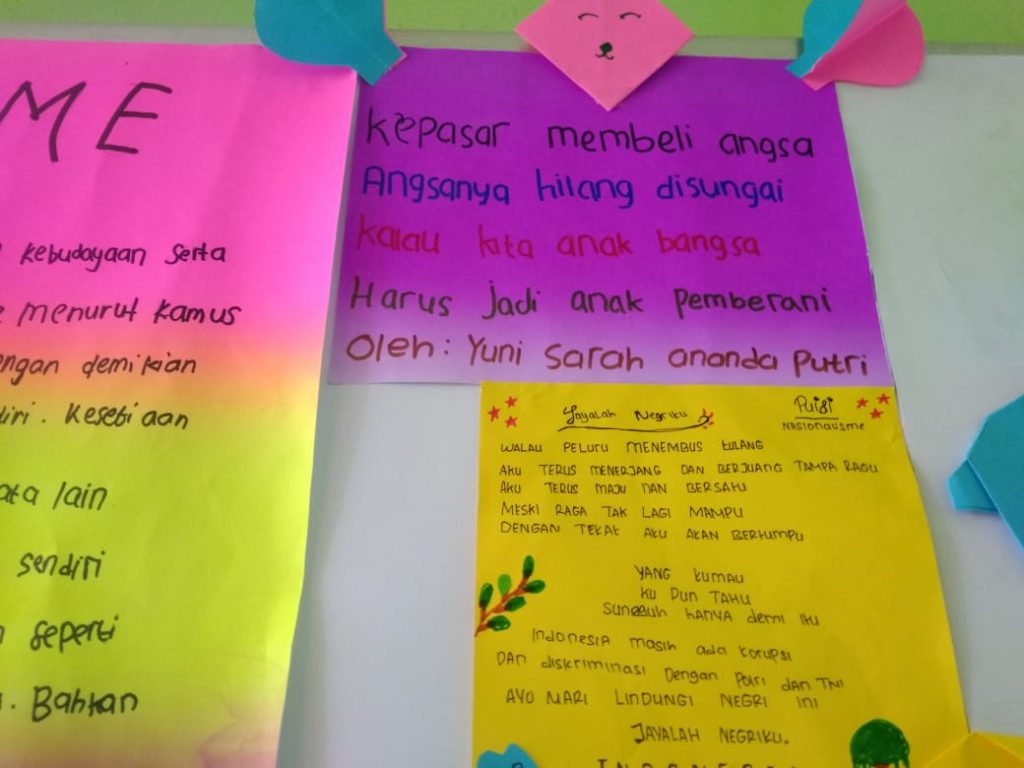 ME
kebudayaan serta
menurut kamus
demikian
Kesetiaan
lain
sendiri
seperti
Bahkan
kepasar membeli angsa
Angsanya hilang disungai
kalau kita anak bangsa
Harus jadi anak pemberani
Oleh: Yuni Sarah ananda Putri
Jayalah Negriku
Puisi
Nasionalisme
WALAU PELURU MENEMBUS tULANG
AKU TERUS MENERJANG DAN BERJUANG TAMPA RAGU
AKU TERUS MAJU DAN BERSATU
MESKI RAGA TAK LAGI MAMPU
DENGAN TEKAT AKU AKAN BERTUMPU
YANG kumau
ku pun TAHU
SUNGGUH HANYA demi itu
Indonesia masih ada korupsi
DAn diskriminasi Dengan Polri dan TNI
AYO MARI LINDUNGI NEGRI ini
JAYALAH NEGRIKU.